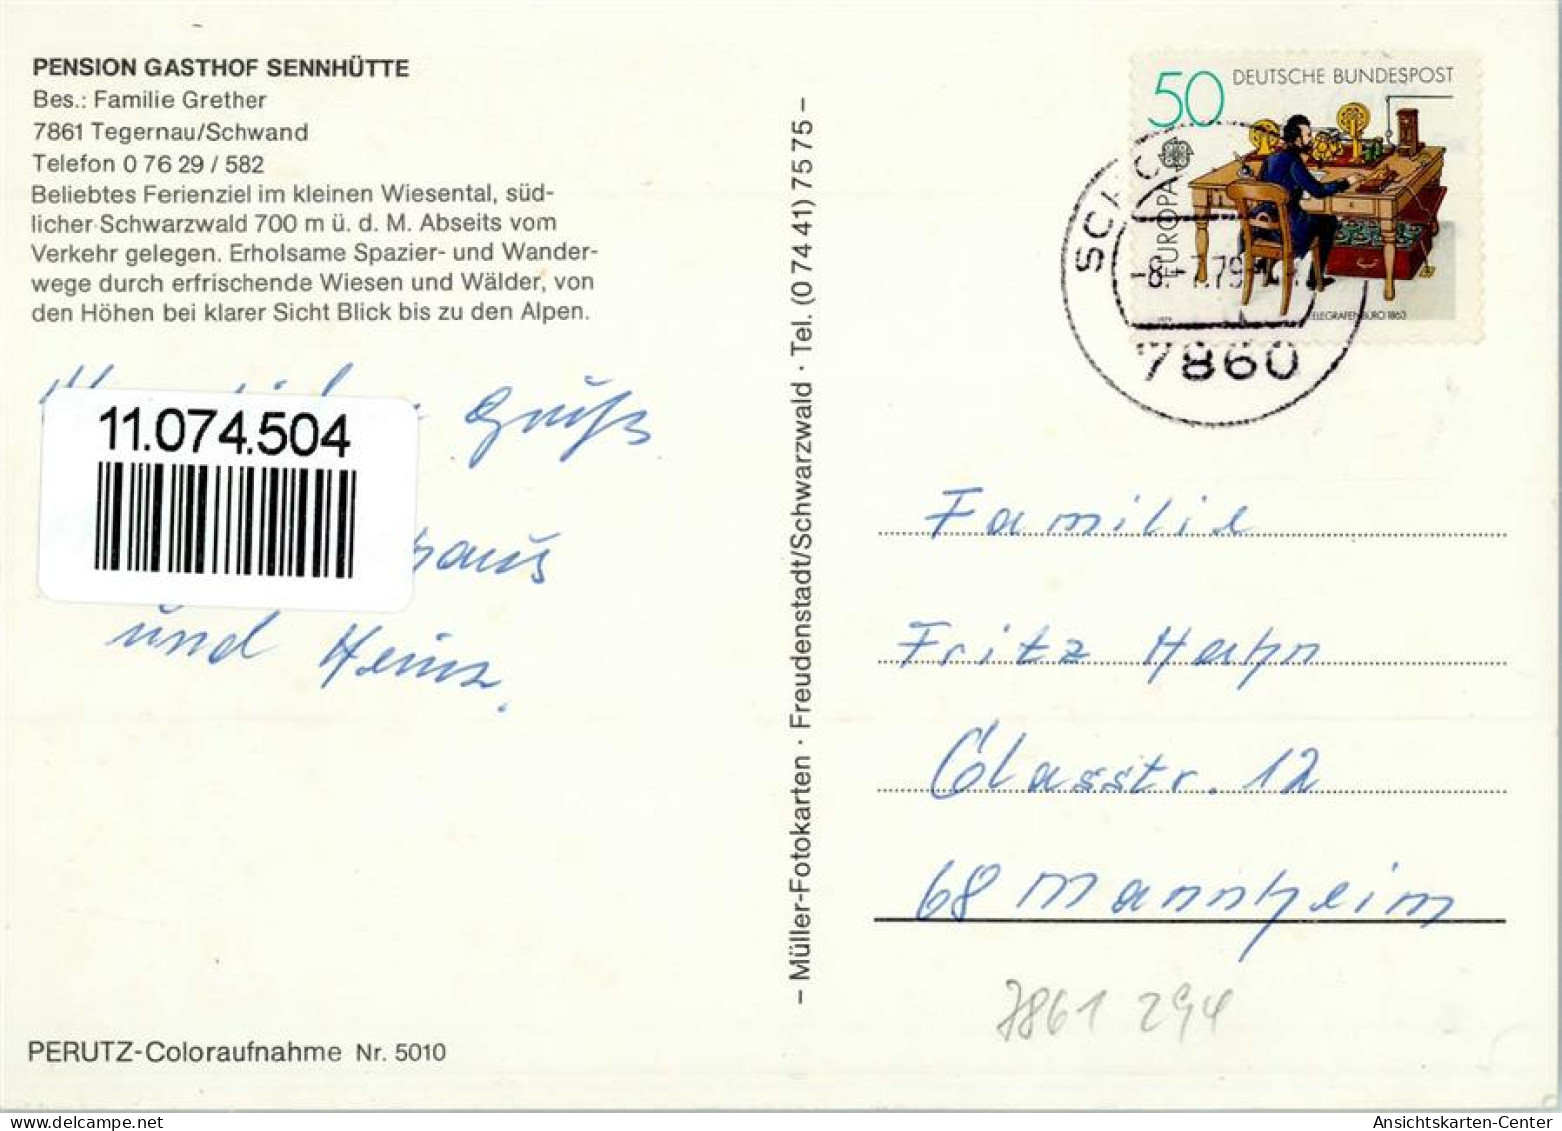 PENSION GASTHOF SENNHÜTTE
Bes.: Familie Grether
7861 Tegernau/Schwand
Telefon 0 76 29 / 582
Beliebtes Ferienziel im kleinen Wiesental, süd-
licher Schwarzwald 700 m ü. d. M. Abseits vom
Verkehr gelegen. Erholsame Spazier- und Wander-
wege durch erfrischende Wiesen und Wälder, von
den Höhen bei klarer Sicht Blick bis zu den Alpen.
11.074.504
und Heinz.
PERUTZ-Coloraufnahme Nr. 5010
– Müller-Fotokarten · Freudenstadt/Schwarzwald · Tel. (0 74 41) 75 75 –
50 DEUTSCHE BUNDESPOST
EUROPA
1979
TELEGRAFENBÜRO 1863
-8.-7.79
7860
Familie
Fritz Hahn
68 Mannheim
7861 294
Ansichtskarten-Center